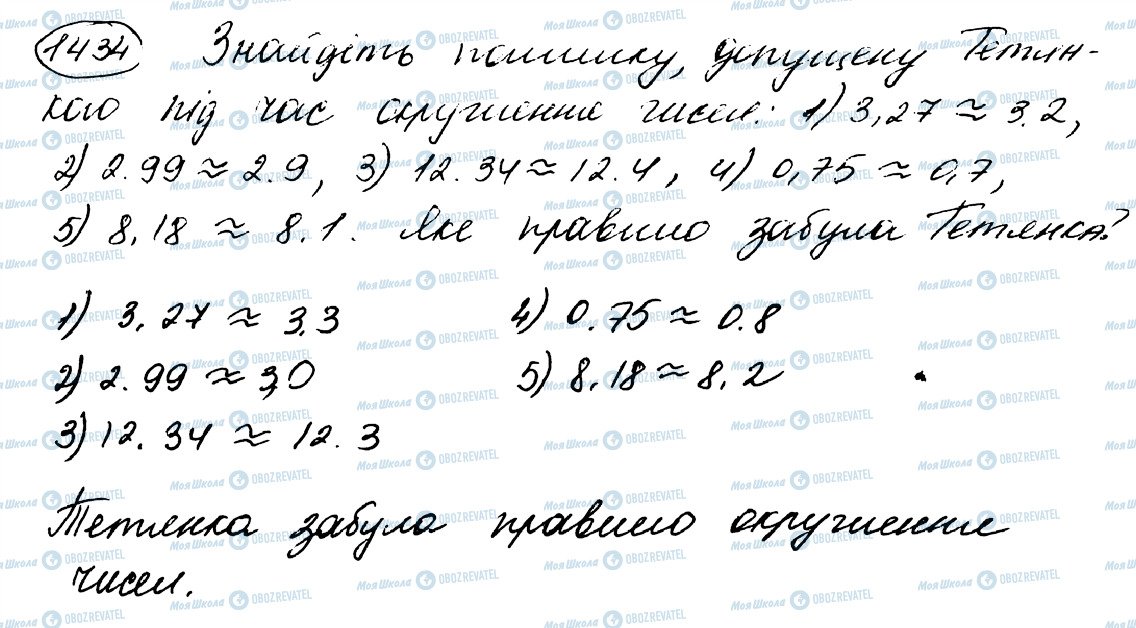 1434 Знайдіть помилку, допущену Тетян-
кою під час округлення чисел: 1) 3,27 ≈ 3.2,
2) 2.99 ≈ 2.9, 3) 12.34 ≈ 12.4, 4) 0,75 ≈ 0,7,
5) 8,18 ≈ 8.1. Яке правило забула Тетянка?
1) 3,27 ≈ 3,3 4) 0.75 ≈ 0.8
2) 2.99 ≈ 3,0 5) 8,18 ≈ 8,2
3) 12.34 ≈ 12.3
Тетянка забула правило округлення
чисел.